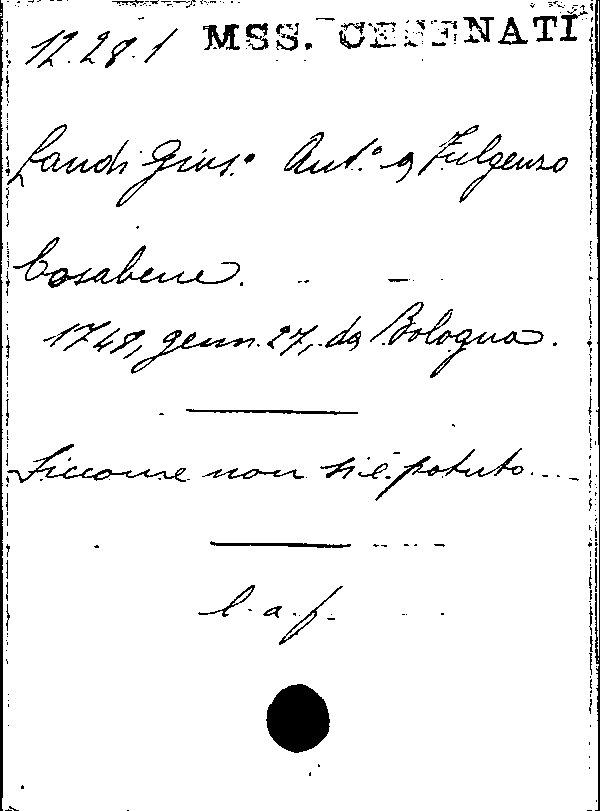 12.28.1 MSS. CESENATI
Landi Gius.e Ant.o a Fulgenzo
Casabene.
1748, genn. 27, da Bologna.
Siccome non si è potuto....
l. a. f.